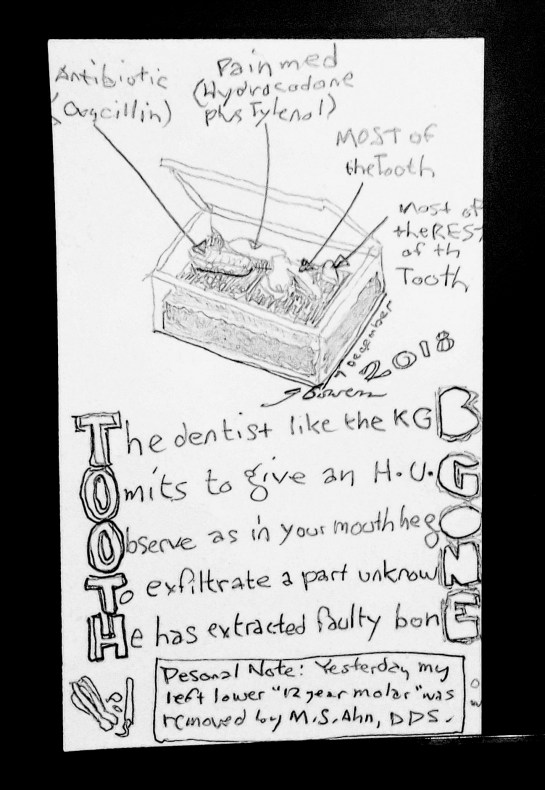 Antibiotic
Pain med
(Hydrocodone
plus Tylenol)
MOST of
the Tooth
Most of
the REST
of th
Tooth
7 December
2018
The dentist like the KGB
Omits to give an H.U.G
Observe as in your mouth he gO
To exfiltrate a part unknowN
He has extracted faulty bonE
Pesonal Note: Yesterday my
left lower "12 year molar" was
removed by M.S. Ahn, DDS.